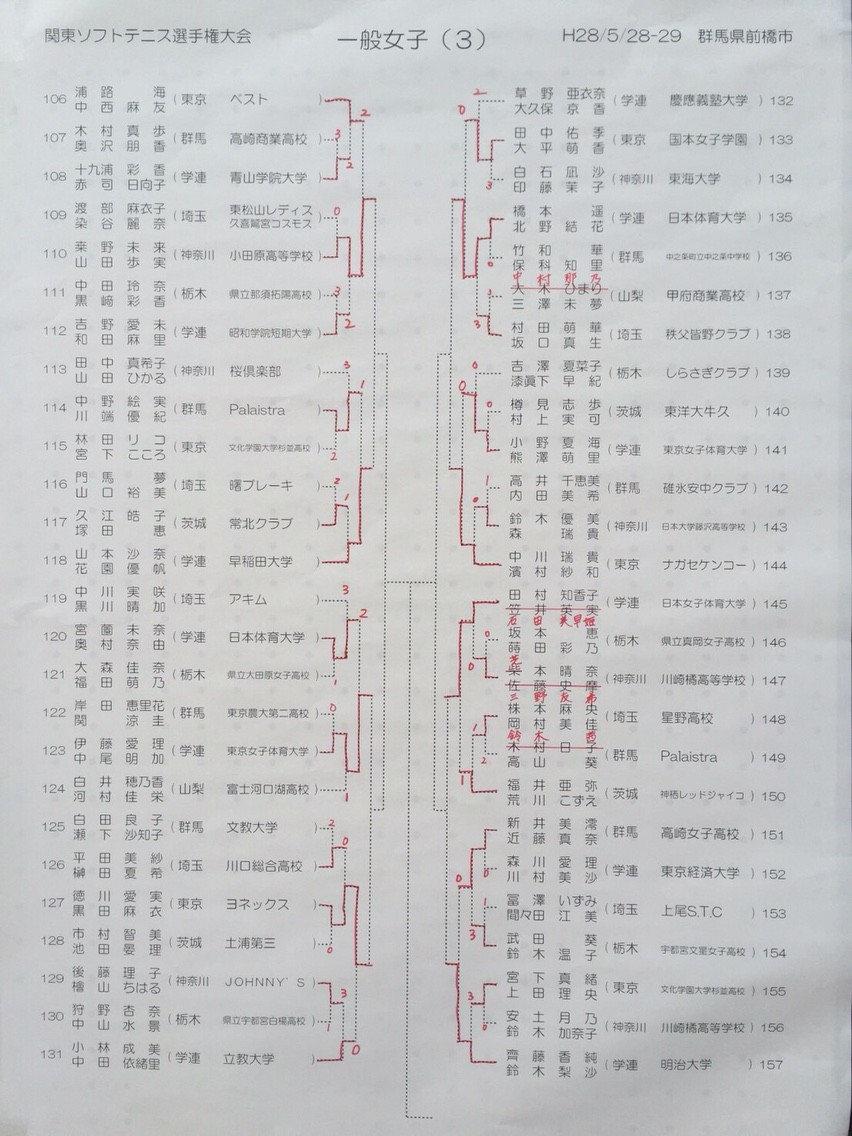 関東ソフトテニス選手権大会
一般女子（3）
H28/5/28-29 群馬県前橋市
106 浦路 海 中西麻友 （東京 ベスト ）
107 木村真歩 奥沢朋香 （群馬 高崎商業高校 ）
108 十九浦彩香 赤司日向子 （学連 青山学院大学 ）
109 渡部麻衣子 染谷麗奈 （埼玉 東松山レディス 久喜鷲宮コスモス ）
110 乗野未来 山田歩実 （神奈川 小田原高等学校 ）
111 中田玲奈 黒﨑彩香 （栃木 県立那須拓陽高校 ）
112 吉野愛未 和田麻里 （学連 昭和学院短期大学 ）
113 田中真希子 山田ひかる （神奈川 桜倶楽部 ）
114 中野絵実 川端優紀 （群馬 Palaistra ）
115 林田リコ 宮下こころ （東京 文化学園大学杉並高校 ）
116 門馬 夢 山口裕美 （埼玉 曙ブレーキ ）
117 久江皓子 塚田 恵 （茨城 常北クラブ ）
118 山本沙奈 花園優帆 （学連 早稲田大学 ）
119 中川実咲 黒川晴加 （埼玉 アキム ）
120 宮薗未奈 奥村奈由 （学連 日本体育大学 ）
121 大森佳奈 福田萌乃 （栃木 県立大田原女子高校 ）
122 岸田恵里花 関 涼圭 （群馬 東京農大第二高校 ）
123 伊藤愛理 中尾明加 （学連 東京女子体育大学 ）
124 白井穂乃香 河村佳栄 （山梨 富士河口湖高校 ）
125 白田良子 瀬下沙知子 （群馬 文教大学 ）
126 平田美紗 榊田夏希 （埼玉 川口総合高校 ）
127 徳川愛実 黒田麻衣 （東京 ヨネックス ）
128 市村智美 池田晏理 （茨城 土浦第三 ）
129 後藤理子 檜山ちはる （神奈川 JOHNNY'S ）
130 狩野杏奈 中山水景 （栃木 県立宇都宮白楊高校 ）
131 小林成美 中田依緒里 （学連 立教大学 ）
草野亜衣奈 大久保京香 （学連 慶應義塾大学 ）132
田中佑季 大平萌香 （東京 国本女子学園 ）133
白石凪沙 印藤茉子 （神奈川 東海大学 ）134
橋本 遥 北野結花 （学連 日本体育大学 ）135
竹和 華 保科知里 （群馬 中之条町立中之条中学校 ）136
中村那乃
大木ひまり 三澤未夢 （山梨 甲府商業高校 ）137
村田萌華 坂口真生 （埼玉 秩父皆野クラブ ）138
吉澤夏菜子 漆眞下早紀 （栃木 しらさぎクラブ ）139
樽見志歩 村上実可 （茨城 東洋大牛久 ）140
小野夏海 熊澤萌里 （学連 東京女子体育大学 ）141
高井千恵美 内田美希 （群馬 碓氷安中クラブ ）142
鈴木優美 森 瑞貴 （神奈川 日本大学藤沢高等学校 ）143
中川瑞貴 濱村紗和 （東京 ナガセケンコー ）144
田村知香子 笠井英実 （学連 日本女子体育大学 ）145
石田美早姫
坂本 恵 蒔田彩乃 （栃木 県立真岡女子高校 ）146
柴本晴奈 佐藤史摩 （神奈川 川崎橘高等学校 ）147
三野友希
株本麻央 岡村美佳 （埼玉 星野高校 ）148
鈴木 茜
木村日子 高山 葵 （群馬 Palaistra ）149
福井亜弥 荒川こずえ （茨城 神栖レッドジャイコ ）150
新井美澪 近藤真奈 （群馬 高崎女子高校 ）151
森川愛理 川村美沙 （学連 東京経済大学 ）152
冨澤いずみ 間々田江美 （埼玉 上尾S.T.C ）153
武田 葵 鈴木温子 （栃木 宇都宮文星女子高校 ）154
宮下真緒 上田理央 （東京 文化学園大学杉並高校 ）155
安土月乃 鈴木加奈子 （神奈川 川崎橘高等学校 ）156
齊藤香純 鈴木梨沙 （学連 明治大学 ）157